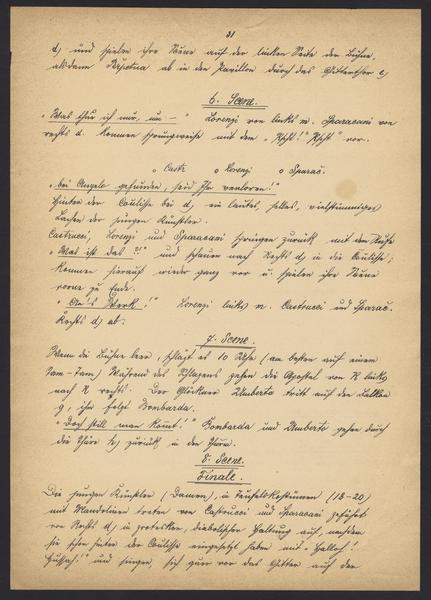 31
d) und spielen ihre Scene auf der linken Seite der Bühne,
alsdann ab in den Pavillon durch das Gitterthor c,
6. Scene.
"Was thue ich nur, um –" Lorenzi von links m. Sparacani von
rechts d. kommen sprungweise mit dem "Pscht!" "Pscht" vor.
o Castr o Lorenzi o Sparac.
"bei Angelo gefunden, seid Ihr verloren!"
Hinter der Coulisse bei d, ein lautes, helles, vielstimmiges
Lachen der jungen Künstler.
Castrucci, Lorenzi und Sparacani springen zurück mit dem Rufe
"Was ist das?!" und schauen nach Rechts d) in die Coulisse;
kommen hierauf wieder ganz vor u. spielen ihre Scene
vorne zu Ende.
"An's Werk!" Lorenzi links m. Castrucci und Sparac.
Rechts d) ab.
7. Scene.
Wenn die Bühne leer, schlägt es 10 Uhr (am besten auf einem
Tam-Tam) Während des Schlagens gehen die Apostel von R links
nach R rechts. Der Glöckner Umberto tritt auf den Balkon
g, ihm folgt Bombarda.
"Doch still man kommt." Bombarda und Umberto gehen durch
die Thüre h) zurück in den Thurm.
8. Scene.
Finale.
Die jungen Künstler (Damen), in Teufelskostümen (18-20)
mit Mandolinen treten von Castrucci und Sparacani geführt
von Rechts d, in grotesker, diabolischer Haltung auf, nachdem
sie schon hinter der Coulisse eingesetzt haben mit "Halloh!
Hussah!" und singen, sich quer vor das Gitter auf der